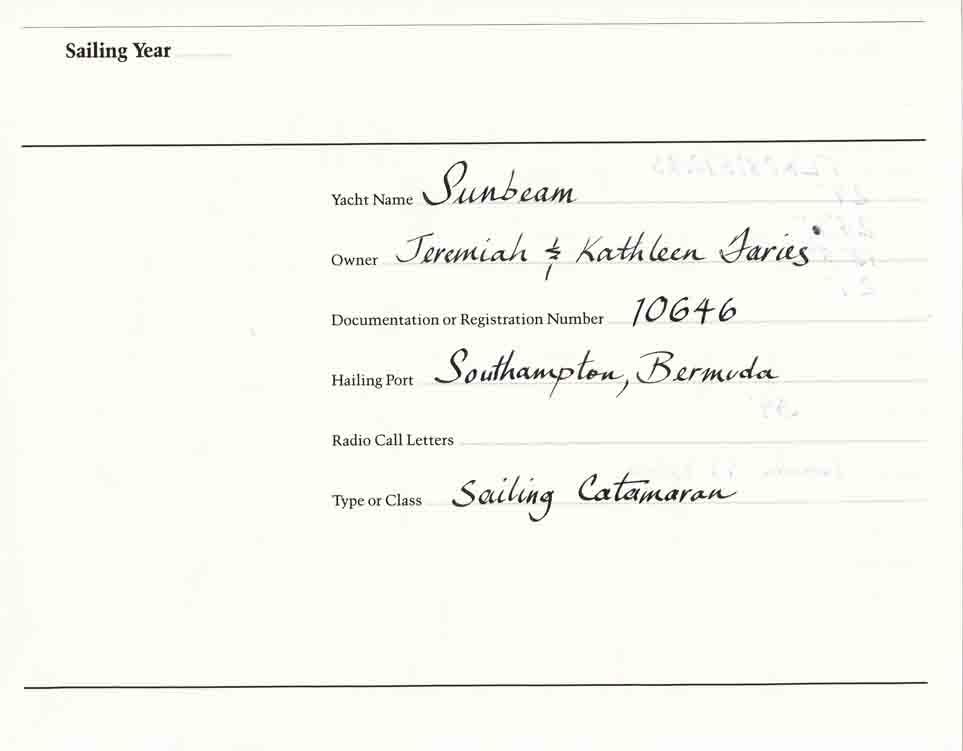 Sailing Year
Yacht Name Sunbeam
Owner Jeremiah & Kathleen Faries
Documentation or Registration Number 10646
Hailing Port Southampton, Bermuda
Radio Call Letters
Type or Class Sailing Catamaran